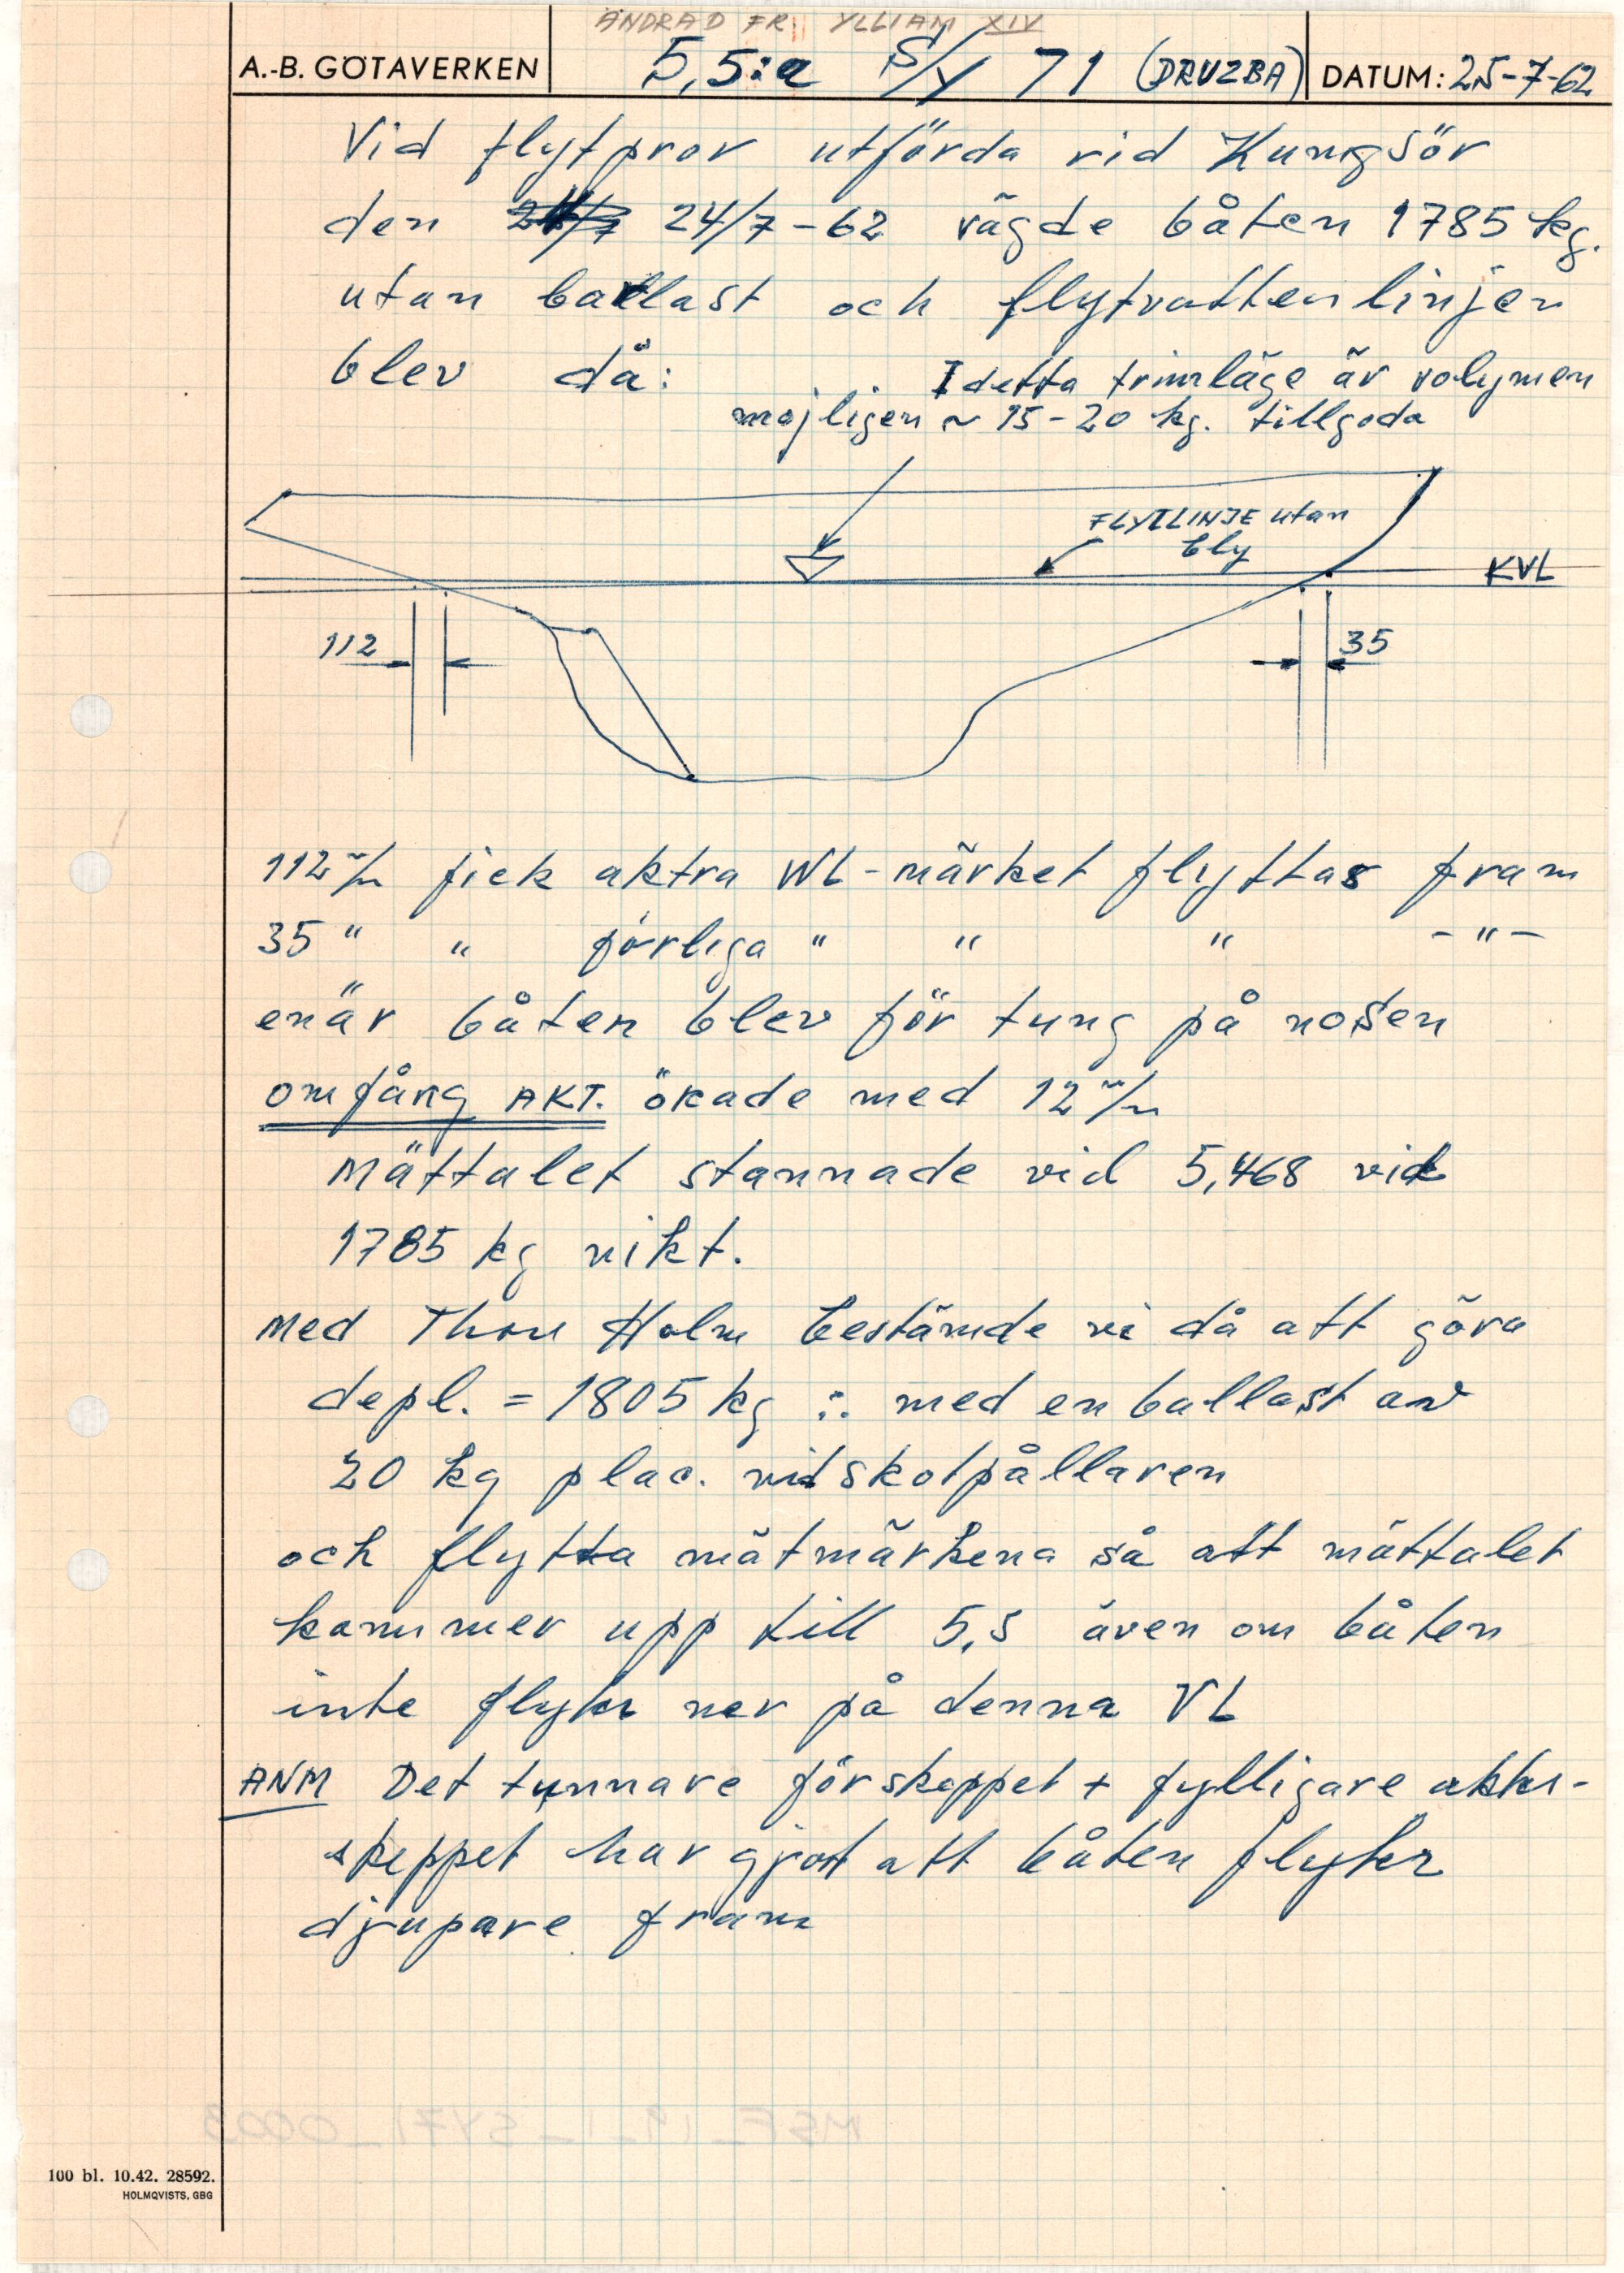 ÄNDRAD FR YLLIAM XIV
A.-B. GÖTAVERKEN 5,5:a S/Y 71 (DRUZBA) DATUM: 25-7-62
Vid flytprov utförda vid Kungsör
den 24/7-62 vägde båten 1785 kg.
utan ballast och flytvattenlinjen
blev då:
I detta trimläge är volymen
möjligen ~ 15-20 kg. tillgodo
FLYTLINJE utan
bly
KVL
112
35
112 m/m fick aktra WL-märket flyttas fram
35 " " förliga " " " - " -
enär båten blev för tung på nosen
omfång AKT. ökade med 12 m/m
Mättalet stannade vid 5,468 vid
1785 kg vikt.
Med Thou Holm bestämde vi då att göra
depl. = 1805 kg ∴ med en ballast av
20 kg plac. vid skotpållaren
och flytta mätmärkena så att mättalet
kommer upp till 5,5 även om båten
inte flyter ner på denna VL
ANM Det tunnare förskeppet + fylligare akter-
skeppet har gjort att båten flyter
djupare fram
100 bl. 10.42. 28592.
HOLMQVISTS, GBG